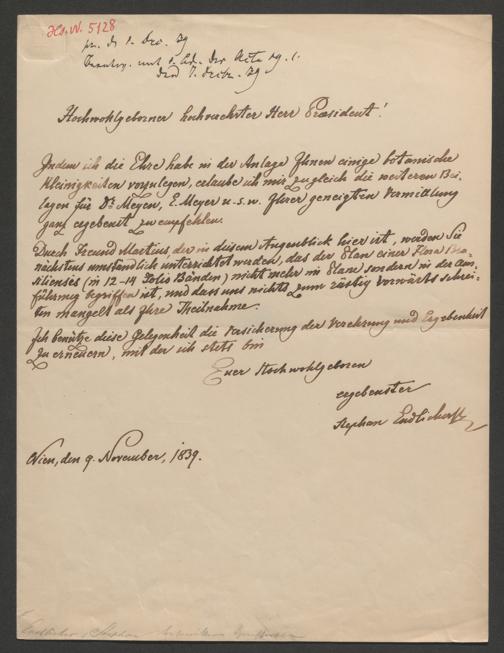 Hs. N. 5128
pr. d. 1. Dec. 39
Beantw. mit
den 7. Decbr. 39.
Hochwohlgeborner hochverehrter Herr Præsident!
Indem ich die Ehre habe in der Anlage Ihnen einige botanische
Kleinigkeiten vorzulegen, erlaube ich mir zugleich die weiteren Bei-
lagen für Dr. Meyen, E. Meyer u. s. w. Ihrer geneigten Vermittlung
ganz ergebenst zu empfehlen.
Durch Freund Martius, der in diesem Augenblick hier ist, werden Sie
nächstens umständlich unterrichtet werden, das der Plan einer Flora Bra-
siliensis (in 12-14 Folio Bänden) nicht mehr im Plane sondern in der Aus-
führung begriffen ist, und dass uns nichts zum rüstig vorwärts schrei-
ten mangelt als Ihre Theilnahme.
Ich benütze diese Gelegenheit die Versicherung der Verehrung und Ergebenheit
zu erneuern, mit der ich stets bin
Euer Hochwohlgeboren
ergebenster
Stephan Endlicher
Wien, den 9. November, 1839.
Endlicher, Stephan